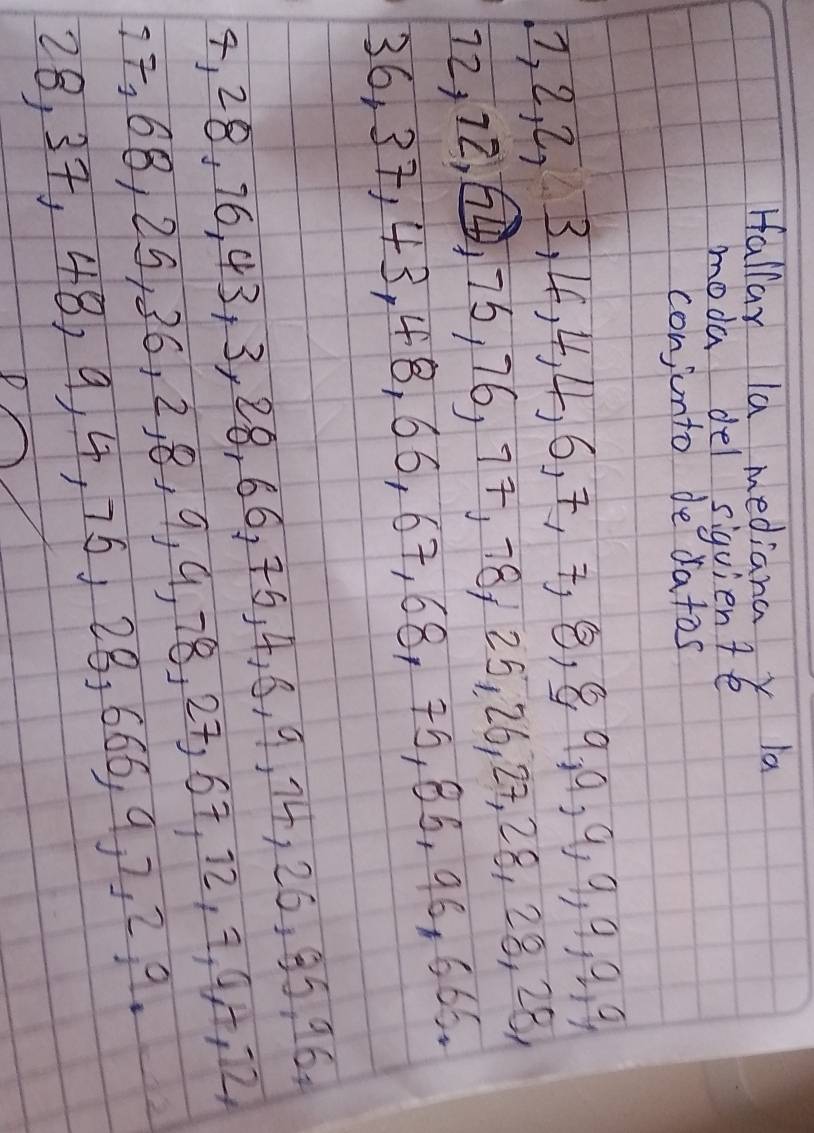 Hallar la mediana y la
moda del siguiente
conjunto de datos
1,2,2,3,4,4,4,6,7,7,8,8,9,9,9,9,9,9,9,
12,12,14,15,16,17,18,25,26,27,28,28,28,
36,37,43,48,66,67,68,75,85,96,666.
7,28,16,43,3,28,66,75,4,6,9,14,26,85,96,
17,68,25,36,2,8,9,9,18,27,67,12,7,9,7,12,
28,37,48,9,4,15,28,666,9,1,2,9.